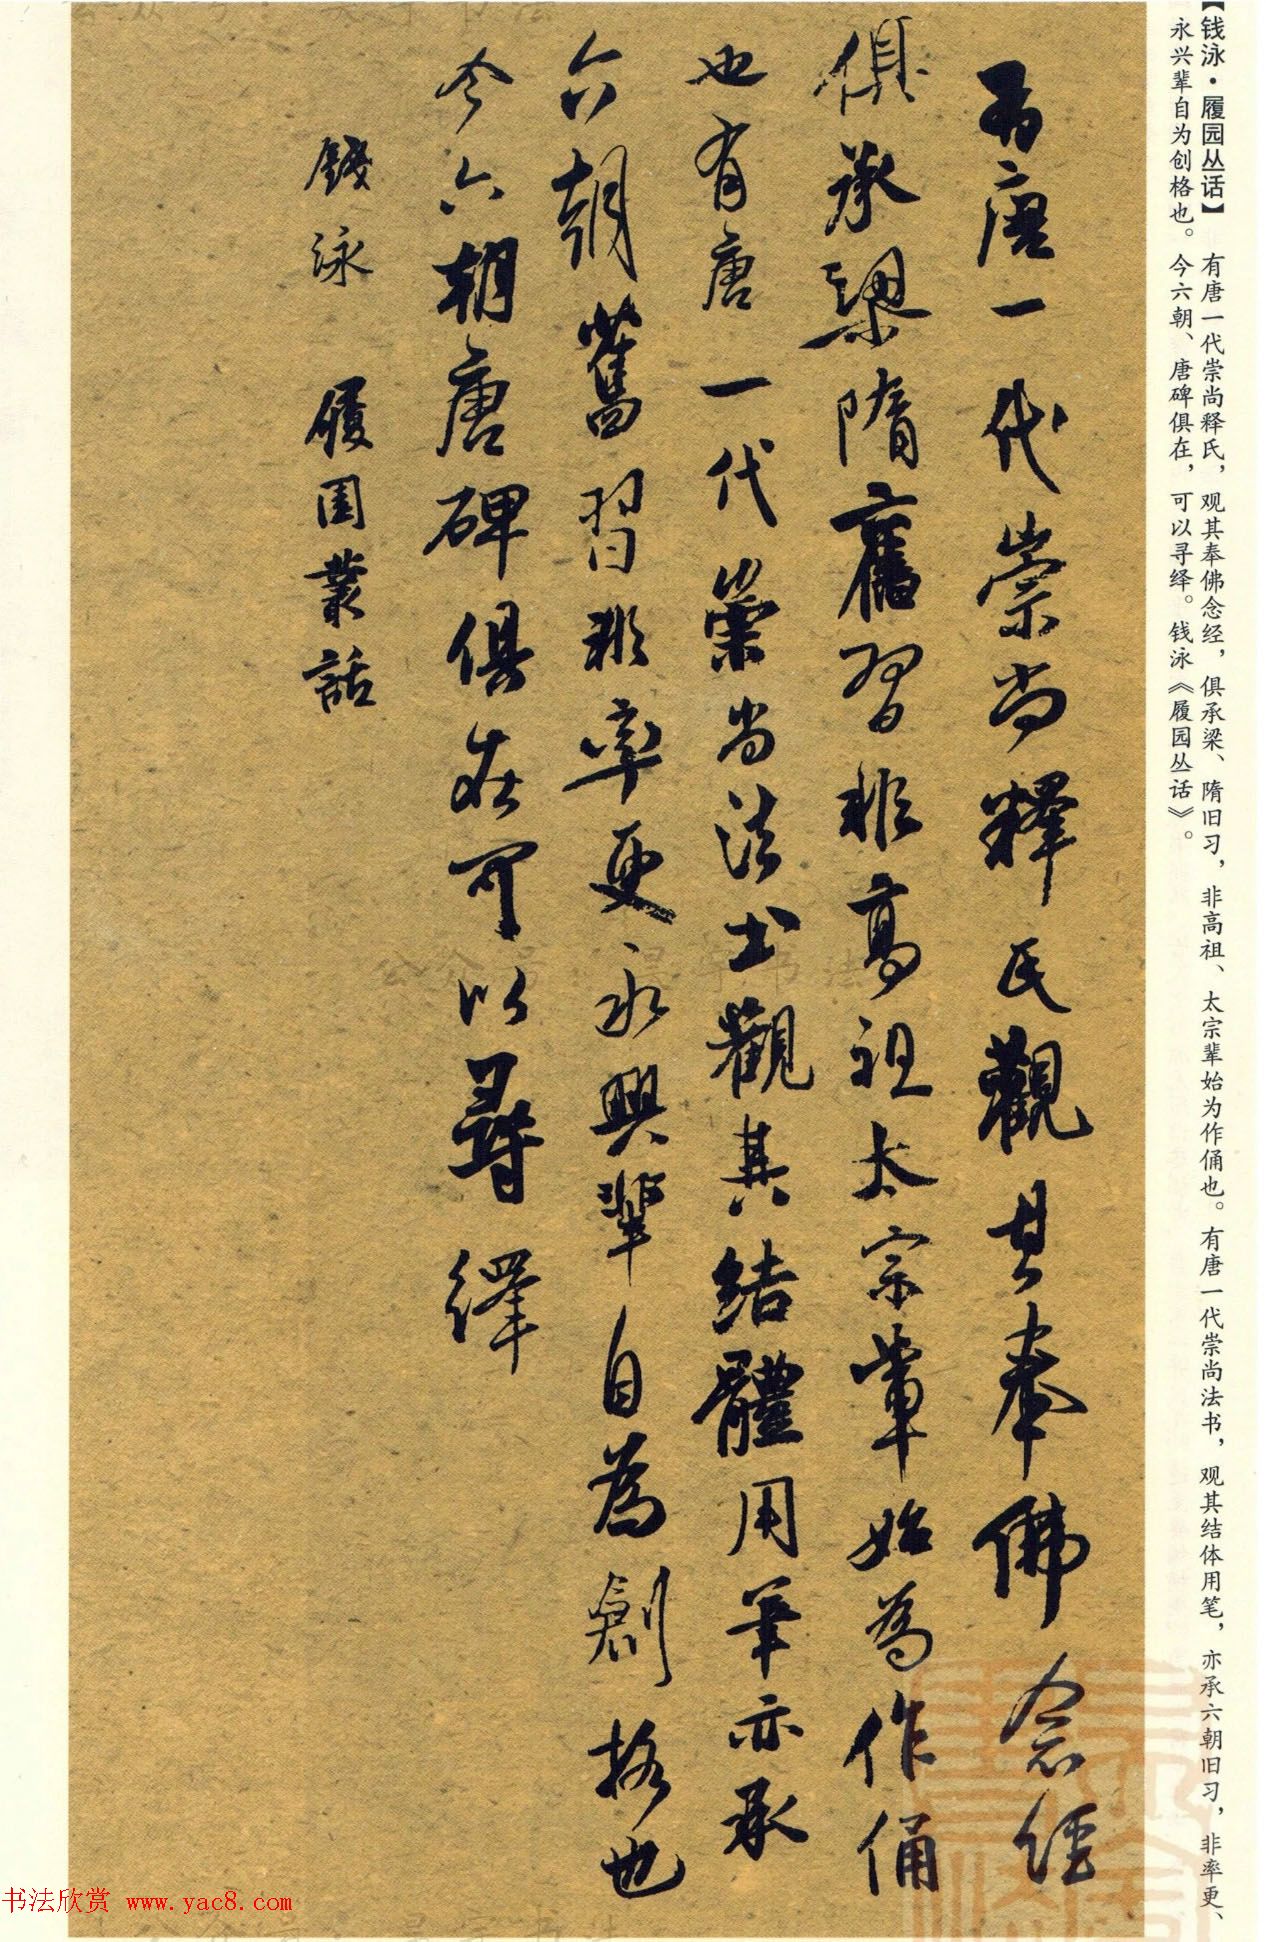 【钱泳·履园丛话】 有唐一代崇尚释氏，观其奉佛念经，俱承梁、隋旧习，非高祖、太宗辈始为作俑也。有唐一代崇尚法书，观其结体用笔，亦承六朝旧习，非率更、
永兴辈自为创格也。今六朝、唐碑俱在，可以寻绎。钱泳《履园丛话》。
有唐一代崇尚釋氏觀其奉佛念經
俱承梁隋舊習非高祖太宗輩始為作俑
也有唐一代崇尚法書觀其結體用筆亦承
六朝舊習非率更永興輩自為創格也
今六朝唐碑俱在可以尋繹
錢泳 履園叢話
书法欣赏 www.yac8.com